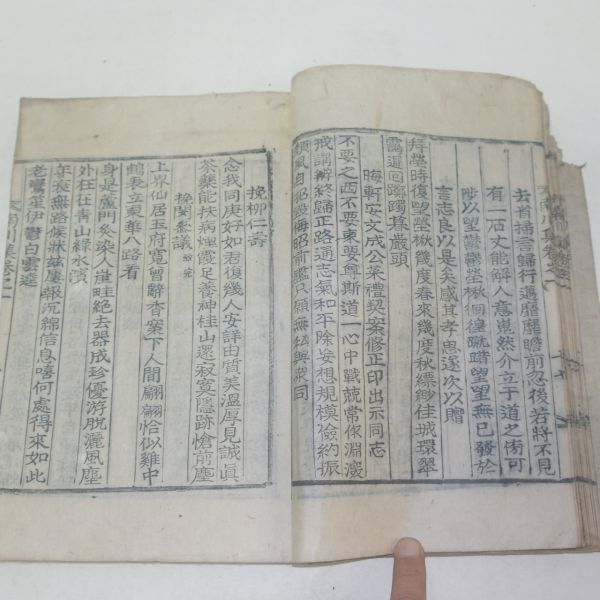 去首掃言歸行邁靡靡瞻前忽後若將不見
有一石丈能解人意嵬然介立于道之傍可
陟以望鬱鬱塋楸徊徨蹴踖望望無已發於
言志良以是矣感其孝思遂次以贈
拜塋時復望塋楸幾度春來幾度秋縹緲佳城環翠
靄遲回躑躅暮巖頭
晦軒安文成公菜禮契案修正印出示同志
不要之西不要東要尊斯道一心中戰兢常保淵濙
戒講辨終歸正路通志氣和平除妄想規模儉約振
頹風自貽毀悔昭前鑑只願無
同
挽柳仁
念我同庚好如君復幾人安詳由質美溫厚見誠眞
茶藥能扶病煙霞足養神桂山還寂寞隱跡愴前塵
挽閔參議
上界仙居玉府寬曾辭香案下人間翩翩恰似雞中
鶴表立東華八路看
身是蘆門灸染人崖畦絶去器成珍優游脫灑風塵
外狂在靑山綠水濱
年衰無路候牀玆屢報沉綿信息嘻何處得來如此
老鸞笙伊鬱白雲逵